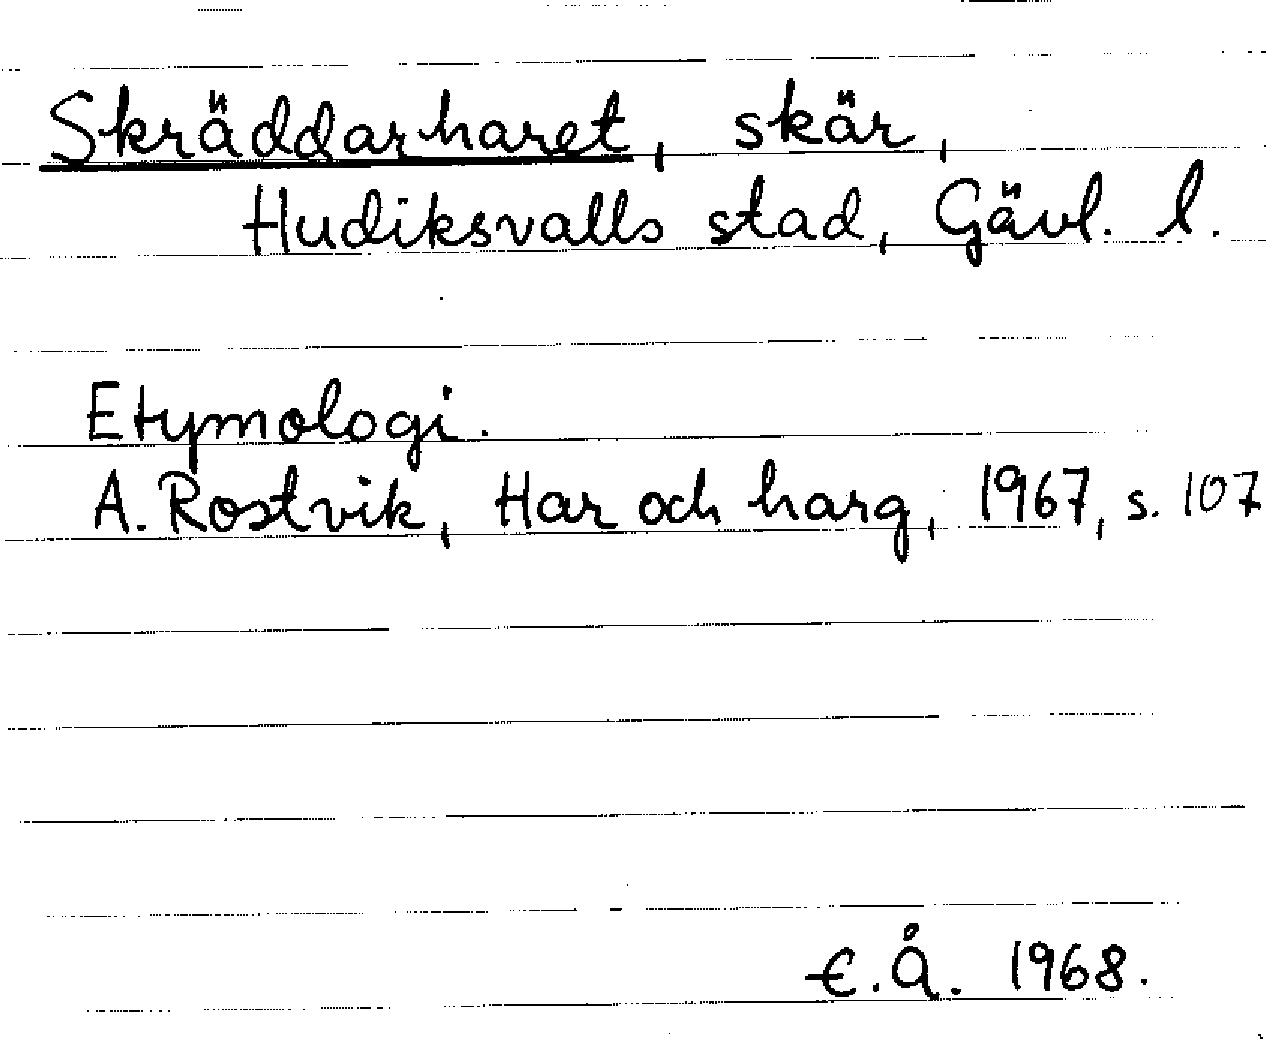 Skräddarharet, skär,
Hudiksvalls stad, Gävl. l.
Etymologi.
A. Rostvik, Har och harg, 1967, s. 107
E.Å. 1968.